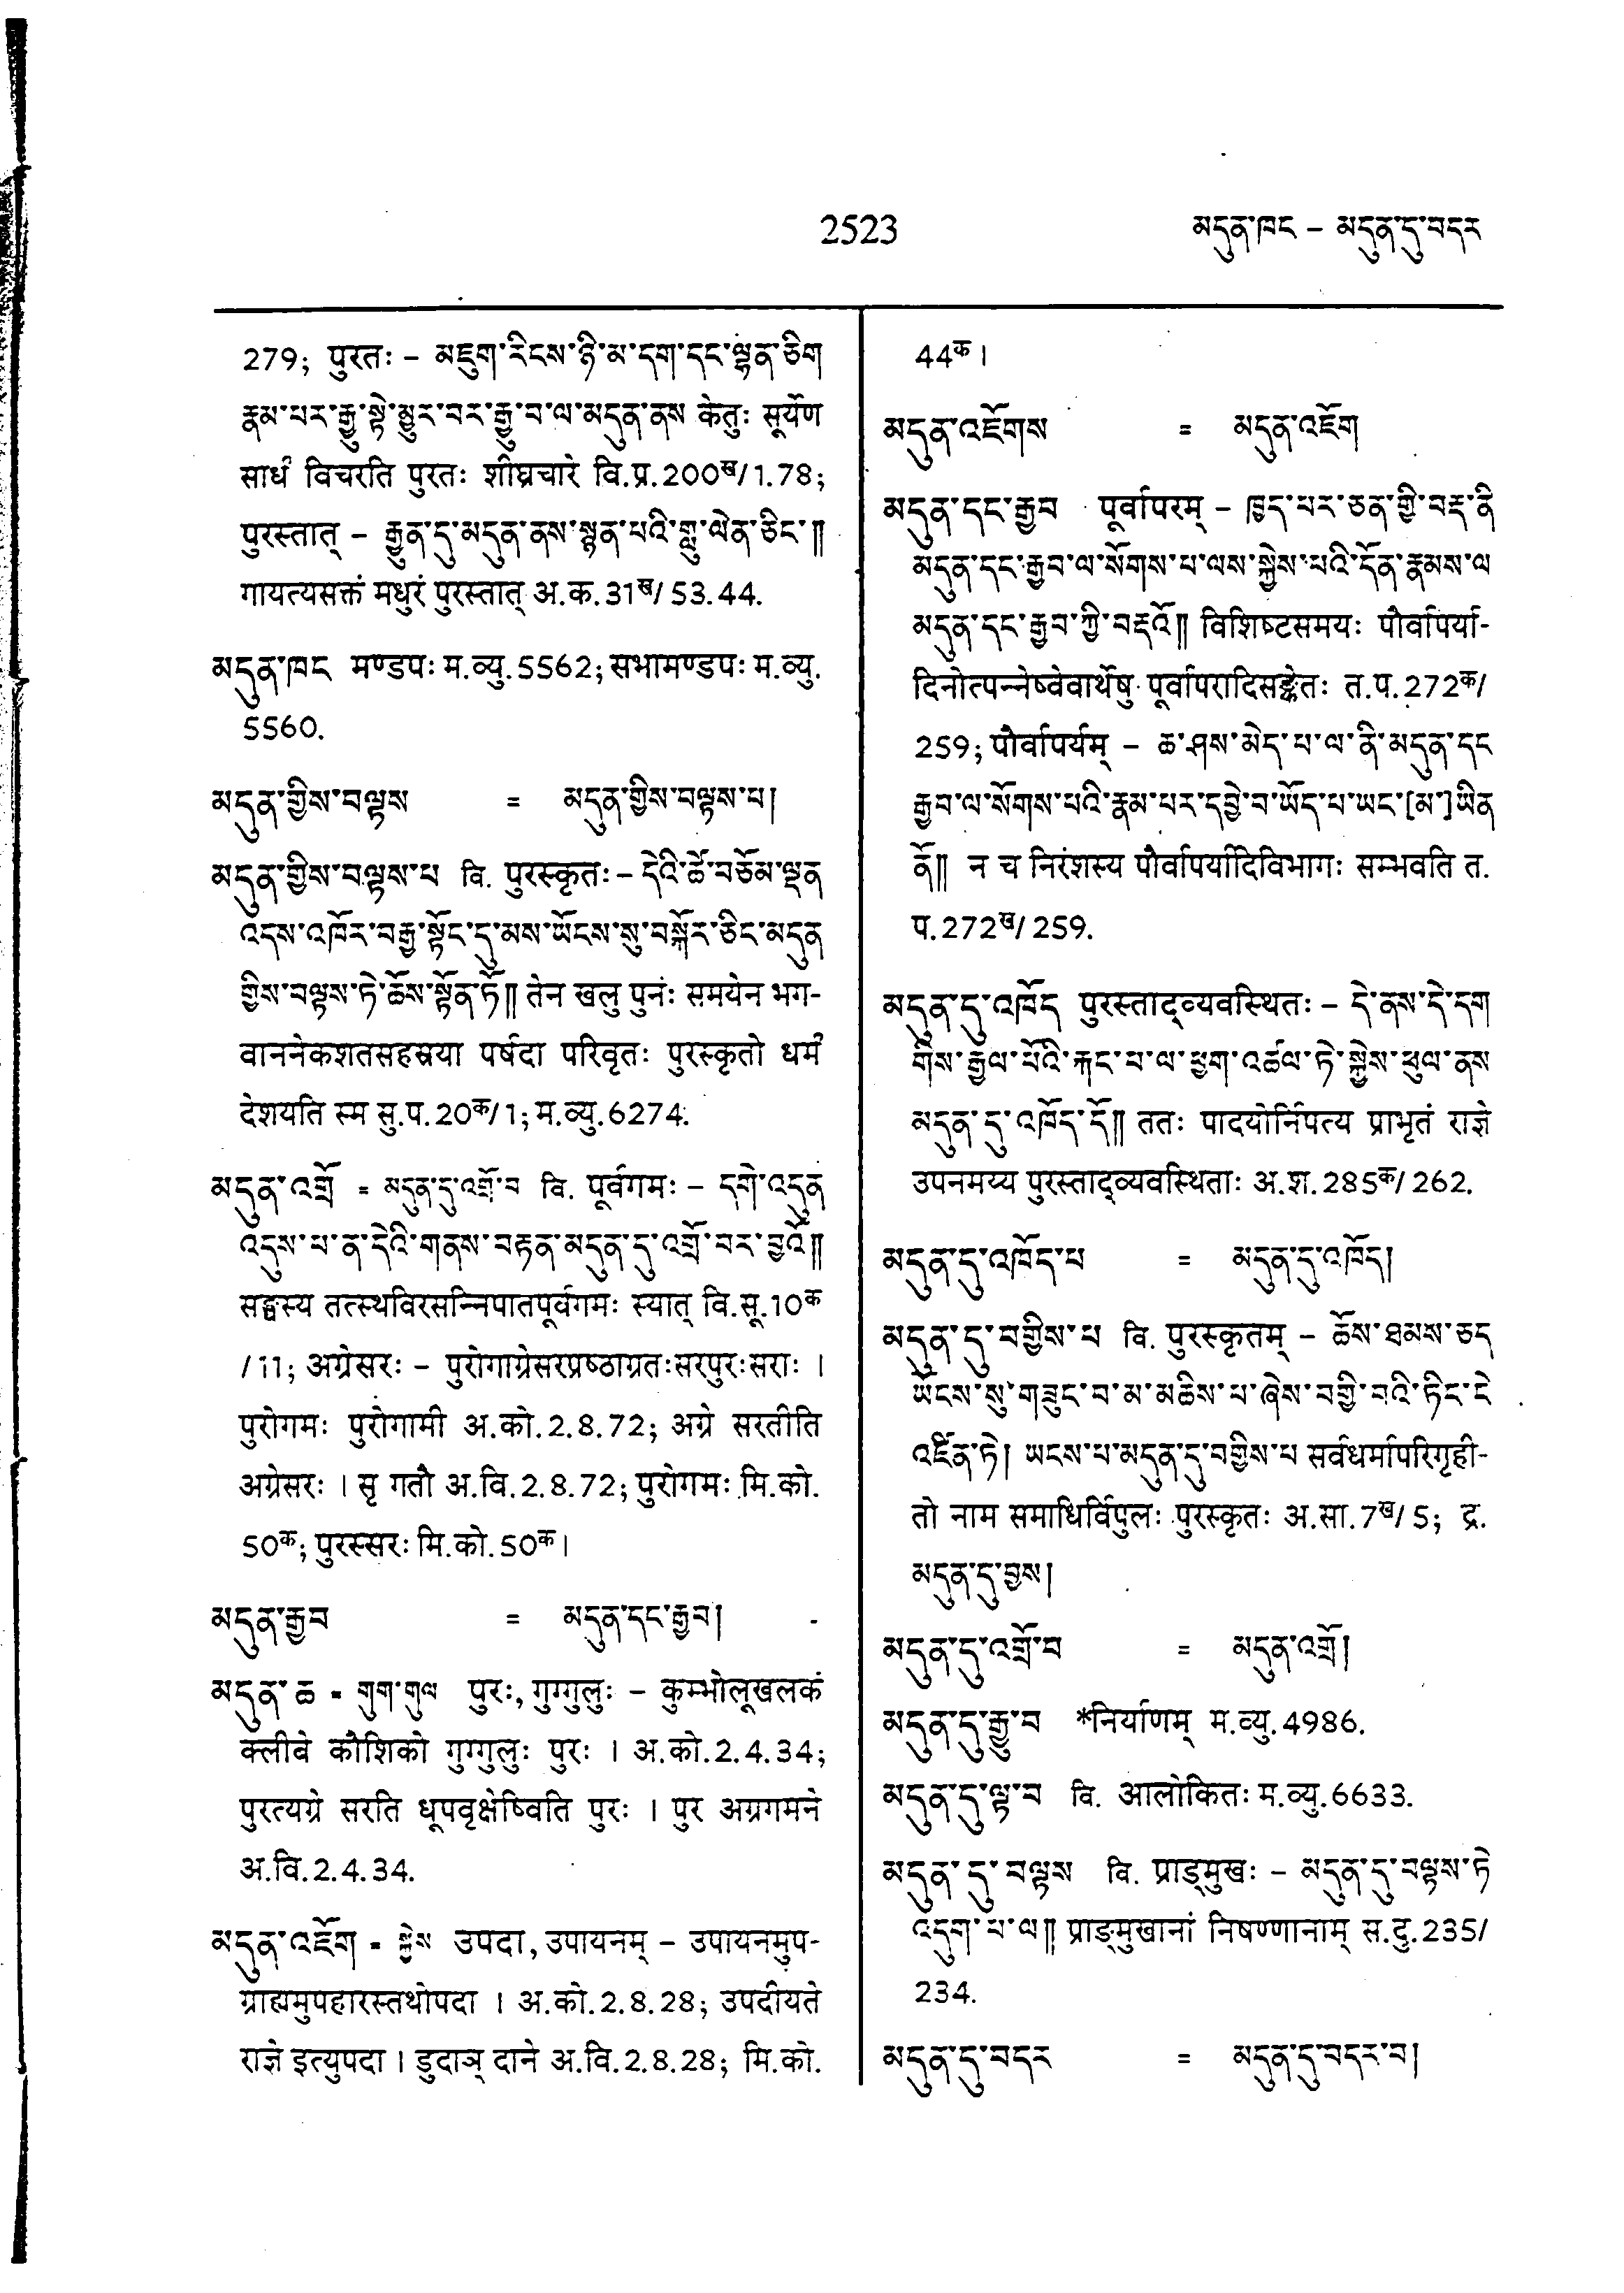 2523
མདུན་ཁང – མདུན་དུ་བདར
279; पुरतः – མཇུག་རིངས་ཉི་མ་དག་དང་ལྷན་ཅིག
རྣམ་པར་རྒྱུ་སྟེ་མྱུར་བར་རྒྱུ་བ་ལ་མདུན་ནས केतुः सूर्येण
सार्धं विचरति पुरतः शीघ्रचारे वि.प्र.200ख/1.78;
पुरस्तात् – རྒྱུན་དུ་མདུན་ནས་སྙན་པའི་གླུ་ལེན་ཅིང་༎
गायत्यसक्तं मधुरं पुरस्तात् अ.क.31ख/53.44.
མདུན་ཁང मण्डपः म.व्यु.5562; सभामण्डपः म.व्यु.
5560.
མདུན་གྱིས་བལྟས = མདུན་གྱིས་བལྟས་པ།
མདུན་གྱིས་བལྟས་པ वि. पुरस्कृतः – དེའི་ཚེ་བཅོམ་ལྡན
འདས་འཁོར་བརྒྱ་སྟོང་དུ་མས་ཡོངས་སུ་བསྐོར་ཅིང་མདུན
གྱིས་བལྟས་ཏེ་ཆོས་སྟོན་ཏོ༎ तेन खलु पुनः समयेन भग-
वाननेकशतसहस्रया पर्षदा परिवृतः पुरस्कृतो धर्मं
देशयति स्म सु.प.20क/1; म.व्यु.6274.
མདུན་འགྲོ = མདུན་དུ་འགྲོ་བ वि. पूर्वगमः – དགེ་འདུན
འདུས་པ་ན་དེའི་གནས་བརྟན་མདུན་དུ་འགྲོ་བར་བྱའོ༎
सङ्घस्य तत्स्थविरसन्निपातपूर्वगमः स्यात् वि.सू.10क
/11; अग्रेसरः – पुरोगाग्रेसरप्रष्ठाग्रतःसरपुरःसराः ।
पुरोगमः पुरोगामी अ.को.2.8.72; अग्रे सरतीति
अग्रेसरः । सृ गतौ अ.वि.2.8.72; पुरोगमः मि.को.
50क; पुरस्सरः मि.को.50क।
མདུན་རྒྱབ = མདུན་དང་རྒྱབ།
མདུན་ཆ = གུག་གུལ पुरः, गुग्गुलुः – कुम्भोलूखलकं
क्लीबे कौशिको गुग्गुलुः पुरः । अ.को.2.4.34;
पुरत्यग्रे सरति धूपवृक्षेष्विति पुरः । पुर अग्रगमने
अ.वि.2.4.34.
མདུན་འཇོག = སྐྱེས उपदा, उपायनम् – उपायनमुप-
ग्राह्यमुपहारस्तथोपदा । अ.को.2.8.28; उपदीयते
राज्ञे इत्युपदा । डुदाञ् दाने अ.वि.2.8.28; मि.को.
44क।
མདུན་འཇོགས = མདུན་འཇོག
མདུན་དང་རྒྱབ पूर्वापरम् – ཁྱད་པར་ཅན་གྱི་བརྡ་ནི
མདུན་དང་རྒྱབ་ལ་སོགས་པ་ལས་སྐྱེས་པའི་དོན་རྣམས་ལ
མདུན་དང་རྒྱབ་ཀྱི་བརྡའོ༎ विशिष्टसमयः पौर्वापर्या-
दिनोत्पन्नेष्वेवार्थेषु पूर्वापरादिसङ्केतः त.प.272क/
259; पौर्वापर्यम् – ཆ་ཤས་མེད་པ་ལ་ནི་མདུན་དང
རྒྱབ་ལ་སོགས་པའི་རྣམ་པར་དབྱེ་བ་ཡོད་པ་ཡང་[མ་]ཡིན
ནོ༎ न च निरंशस्य पौर्वापर्यादिविभागः सम्भवति त.
प.272ख/259.
མདུན་དུ་འཁོད पुरस्ताद्व्यवस्थितः – དེ་ནས་དེ་དག
གིས་རྒྱལ་པོའི་རྐང་པ་ལ་ཕྱག་འཚལ་ཏེ་སྐྱེས་ཕུལ་ནས
མདུན་དུ་འཁོད་དོ༎ ततः पादयोर्निपत्य प्राभृतं राज्ञे
उपनमय्य पुरस्ताद्व्यवस्थिताः अ.श.285क/262.
མདུན་དུ་འཁོད་པ = མདུན་དུ་འཁོད།
མདུན་དུ་བགྱིས་པ वि. पुरस्कृतम् – ཆོས་ཐམས་ཅད
ཡོངས་སུ་གཟུང་བ་མ་མཆིས་པ་ཞེས་བགྱི་བའི་ཏིང་ངེ
འཛིན་ཏེ། ཡངས་པ་མདུན་དུ་བགྱིས་པ सर्वधर्मापरिगृही-
तो नाम समाधिर्विपुलः पुरस्कृतः अ.सा.7ख/5; द्र.
མདུན་དུ་བྱས།
མདུན་དུ་འགྲོ་བ = མདུན་འགྲོ།
མདུན་དུ་རྒྱུ་བ *निर्याणम् म.व्यु.4986.
མདུན་དུ་ལྟ་བ वि. आलोकितः म.व्यु.6633.
མདུན་དུ་བལྟས वि. प्राङ्मुखः – མདུན་དུ་བལྟས་ཏེ
འདུག་པ་ལ༎ प्राङ्मुखानां निषण्णानाम् स.दु.235/
234.
མདུན་དུ་བདར = མདུན་དུ་བདར་བ།